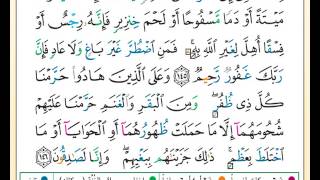 مَيْتَةً أَوْ دَمًا مَّسْفُوحًا أَوْ لَحْمَ خِنزِيرٍ فَإِنَّهُۥ رِجْسٌ أَوْ
فِسْقًا أُهِلَّ لِغَيْرِ ٱللَّهِ بِهِۦ ۚ فَمَنِ ٱضْطُرَّ غَيْرَ بَاغٍ وَلَا عَادٍ فَإِنَّ
رَبَّكَ غَفُورٌ رَّحِيمٌ ١٤٥ وَعَلَى ٱلَّذِينَ هَادُوا۟ حَرَّمْنَا
كُلَّ ذِى ظُفُرٍ ۖ وَمِنَ ٱلْبَقَرِ وَٱلْغَنَمِ حَرَّمْنَا عَلَيْهِمْ
شُحُومَهُمَآ إِلَّا مَا حَمَلَتْ ظُهُورُهُمَآ أَوِ ٱلْحَوَايَآ أَوْ مَا
ٱخْتَلَطَ بِعَظْمٍ ۚ ذَٰلِكَ جَزَيْنَٰهُم بِبَغْيِهِمْ ۖ وَإِنَّا لَصَٰدِقُونَ ١٤٦